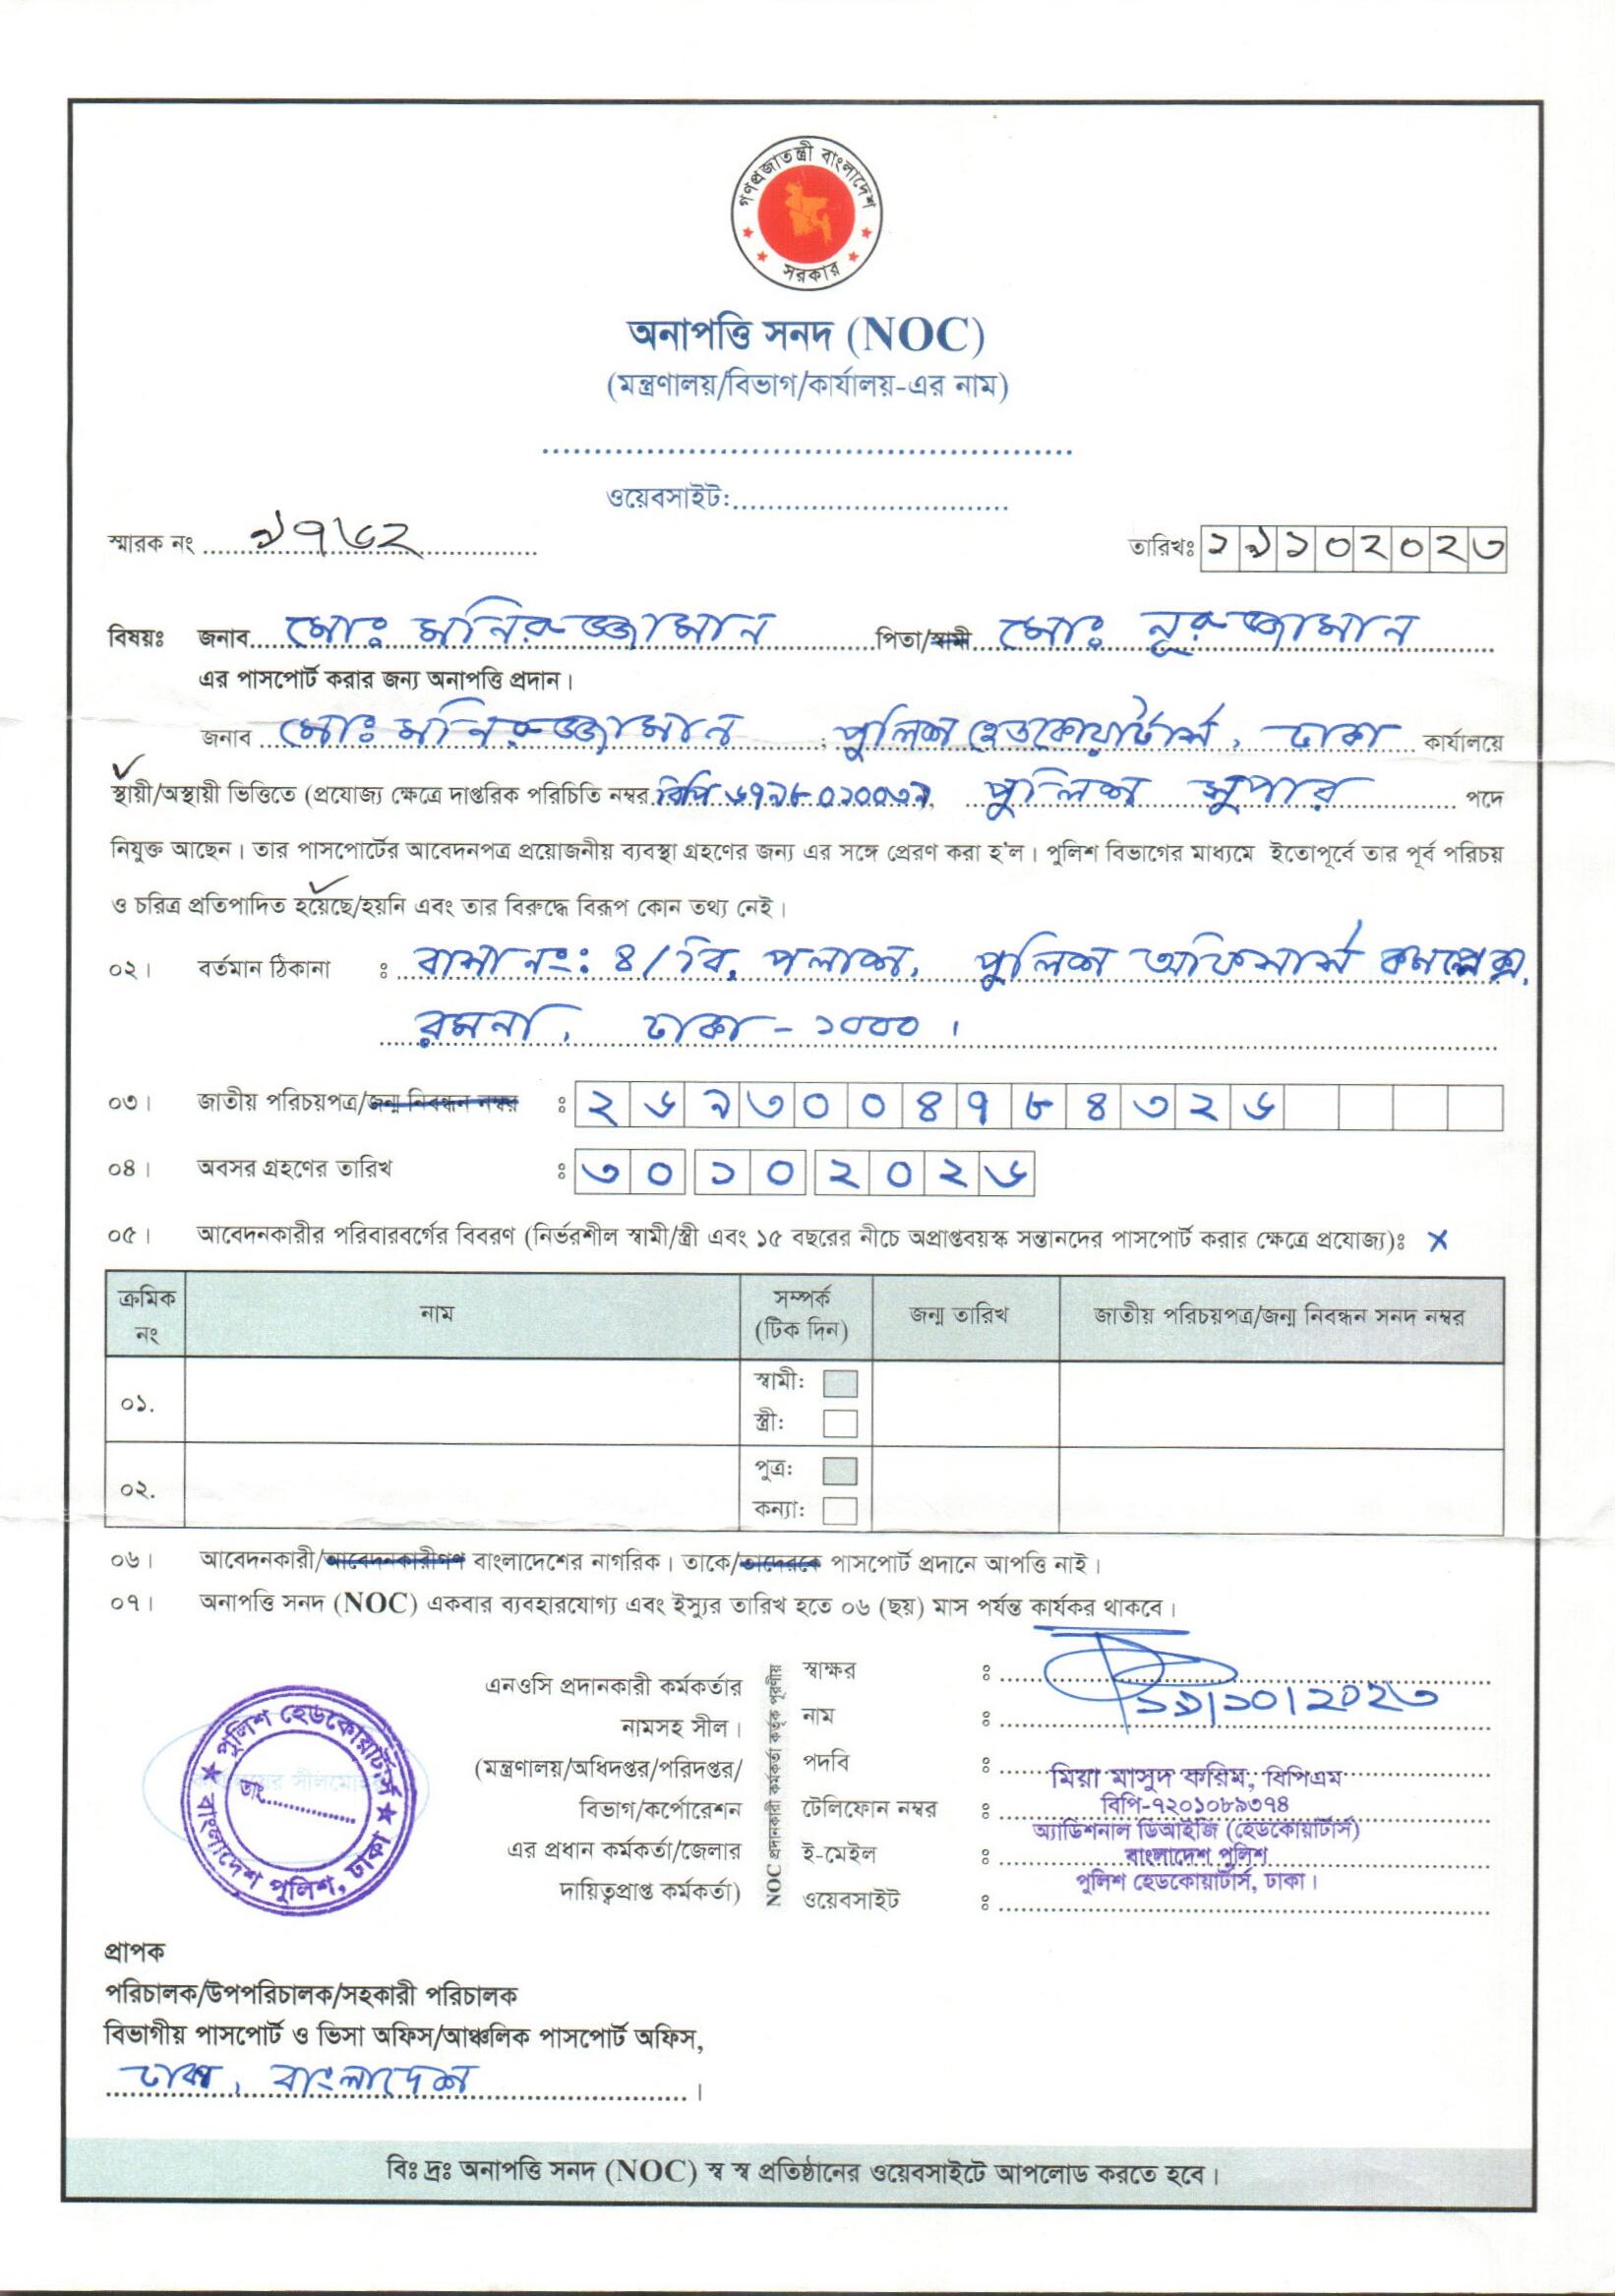 গণপ্রজাতন্ত্রী বাংলাদেশ
সরকার
অনাপত্তি সনদ (NOC)
(মন্ত্রণালয়/বিভাগ/কার্যালয়-এর নাম)
ওয়েবসাইট:
স্মারক নং ১৭৬২ তারিখঃ ১৯১০২০২৩
বিষয়ঃ জনাব মোঃ মনিরুজ্জামান পিতা/স্বামী মোঃ নূরুজ্জামান
এর পাসপোর্ট করার জন্য অনাপত্তি প্রদান।
জনাব মোঃ মনিরুজ্জামান , পুলিশ হেডকোয়ার্টার্স, ঢাকা কার্যালয়ে
স্থায়ী/অস্থায়ী ভিত্তিতে (প্রযোজ্য ক্ষেত্রে দাপ্তরিক পরিচিতি নম্বর বিপি পুলিশ সুপার পদে
নিযুক্ত আছেন। তার পাসপোর্টের আবেদনপত্র প্রয়োজনীয় ব্যবস্থা গ্রহণের জন্য এর সঙ্গে প্রেরণ করা হ'ল। পুলিশ বিভাগের মাধ্যমে ইতোপূর্বে তার পূর্ব পরিচয়
ও চরিত্র প্রতিপাদিত হয়েছে/হয়নি এবং তার বিরুদ্ধে বিরূপ কোন তথ্য নেই।
০২। বর্তমান ঠিকানা ঃ বাসা নং: ৪/বি, পলাশ, পুলিশ অফিসার্স কমপ্লেক্স,
রমনা, ঢাকা - ১০০০।
০৩। জাতীয় পরিচয়পত্র/জন্ম নিবন্ধন নম্বর ঃ ২৬৯৩০০৪৭৮৪৩২৬
০৪। অবসর গ্রহণের তারিখ ঃ ৩০১০২০২৬
০৫। আবেদনকারীর পরিবারবর্গের বিবরণ (নির্ভরশীল স্বামী/স্ত্রী এবং ১৫ বছরের নীচে অপ্রাপ্তবয়স্ক সন্তানদের পাসপোর্ট করার ক্ষেত্রে প্রযোজ্য)ঃ x
ক্রমিক নং নাম সম্পর্ক (টিক দিন) জন্ম তারিখ জাতীয় পরিচয়পত্র/জন্ম নিবন্ধন সনদ নম্বর
০১. স্বামী:
স্ত্রী:
০২. পুত্র:
কন্যা:
০৬। আবেদনকারী/আবেদনকারীগণ বাংলাদেশের নাগরিক। তাকে/তাদেরকে পাসপোর্ট প্রদানে আপত্তি নাই।
০৭। অনাপত্তি সনদ (NOC) একবার ব্যবহারযোগ্য এবং ইস্যুর তারিখ হতে ০৬ (ছয়) মাস পর্যন্ত কার্যকর থাকবে।
এনওসি প্রদানকারী কর্মকর্তার
নামসহ সীল।
(মন্ত্রণালয়/অধিদপ্তর/পরিদপ্তর/
বিভাগ/কর্পোরেশন
এর প্রধান কর্মকর্তা/জেলার
দায়িত্বপ্রাপ্ত কর্মকর্তা)
NOC প্রদানকারী কর্মকর্তা কর্তৃক পূরণীয়
স্বাক্ষর ঃ
১৯/১০/২০২৩
নাম ঃ
পদবি ঃ
টেলিফোন নম্বর ঃ
ই-মেইল ঃ
ওয়েবসাইট ঃ
মিয়া মাসুদ করিম, বিপিএম
বিপি-৭২০১০৮৯৩৭৪
অ্যাডিশনাল ডিআইজি (হেডকোয়ার্টার্স)
বাংলাদেশ পুলিশ
পুলিশ হেডকোয়ার্টার্স, ঢাকা।
পুলিশ হেডকোয়ার্টার্স
বাংলাদেশ পুলিশ, ঢাকা
তাং
প্রাপক
পরিচালক/উপপরিচালক/সহকারী পরিচালক
বিভাগীয় পাসপোর্ট ও ভিসা অফিস/আঞ্চলিক পাসপোর্ট অফিস,
ঢাকা, বাংলাদেশ।
বিঃ দ্রঃ অনাপত্তি সনদ (NOC) স্ব স্ব প্রতিষ্ঠানের ওয়েবসাইটে আপলোড করতে হবে।